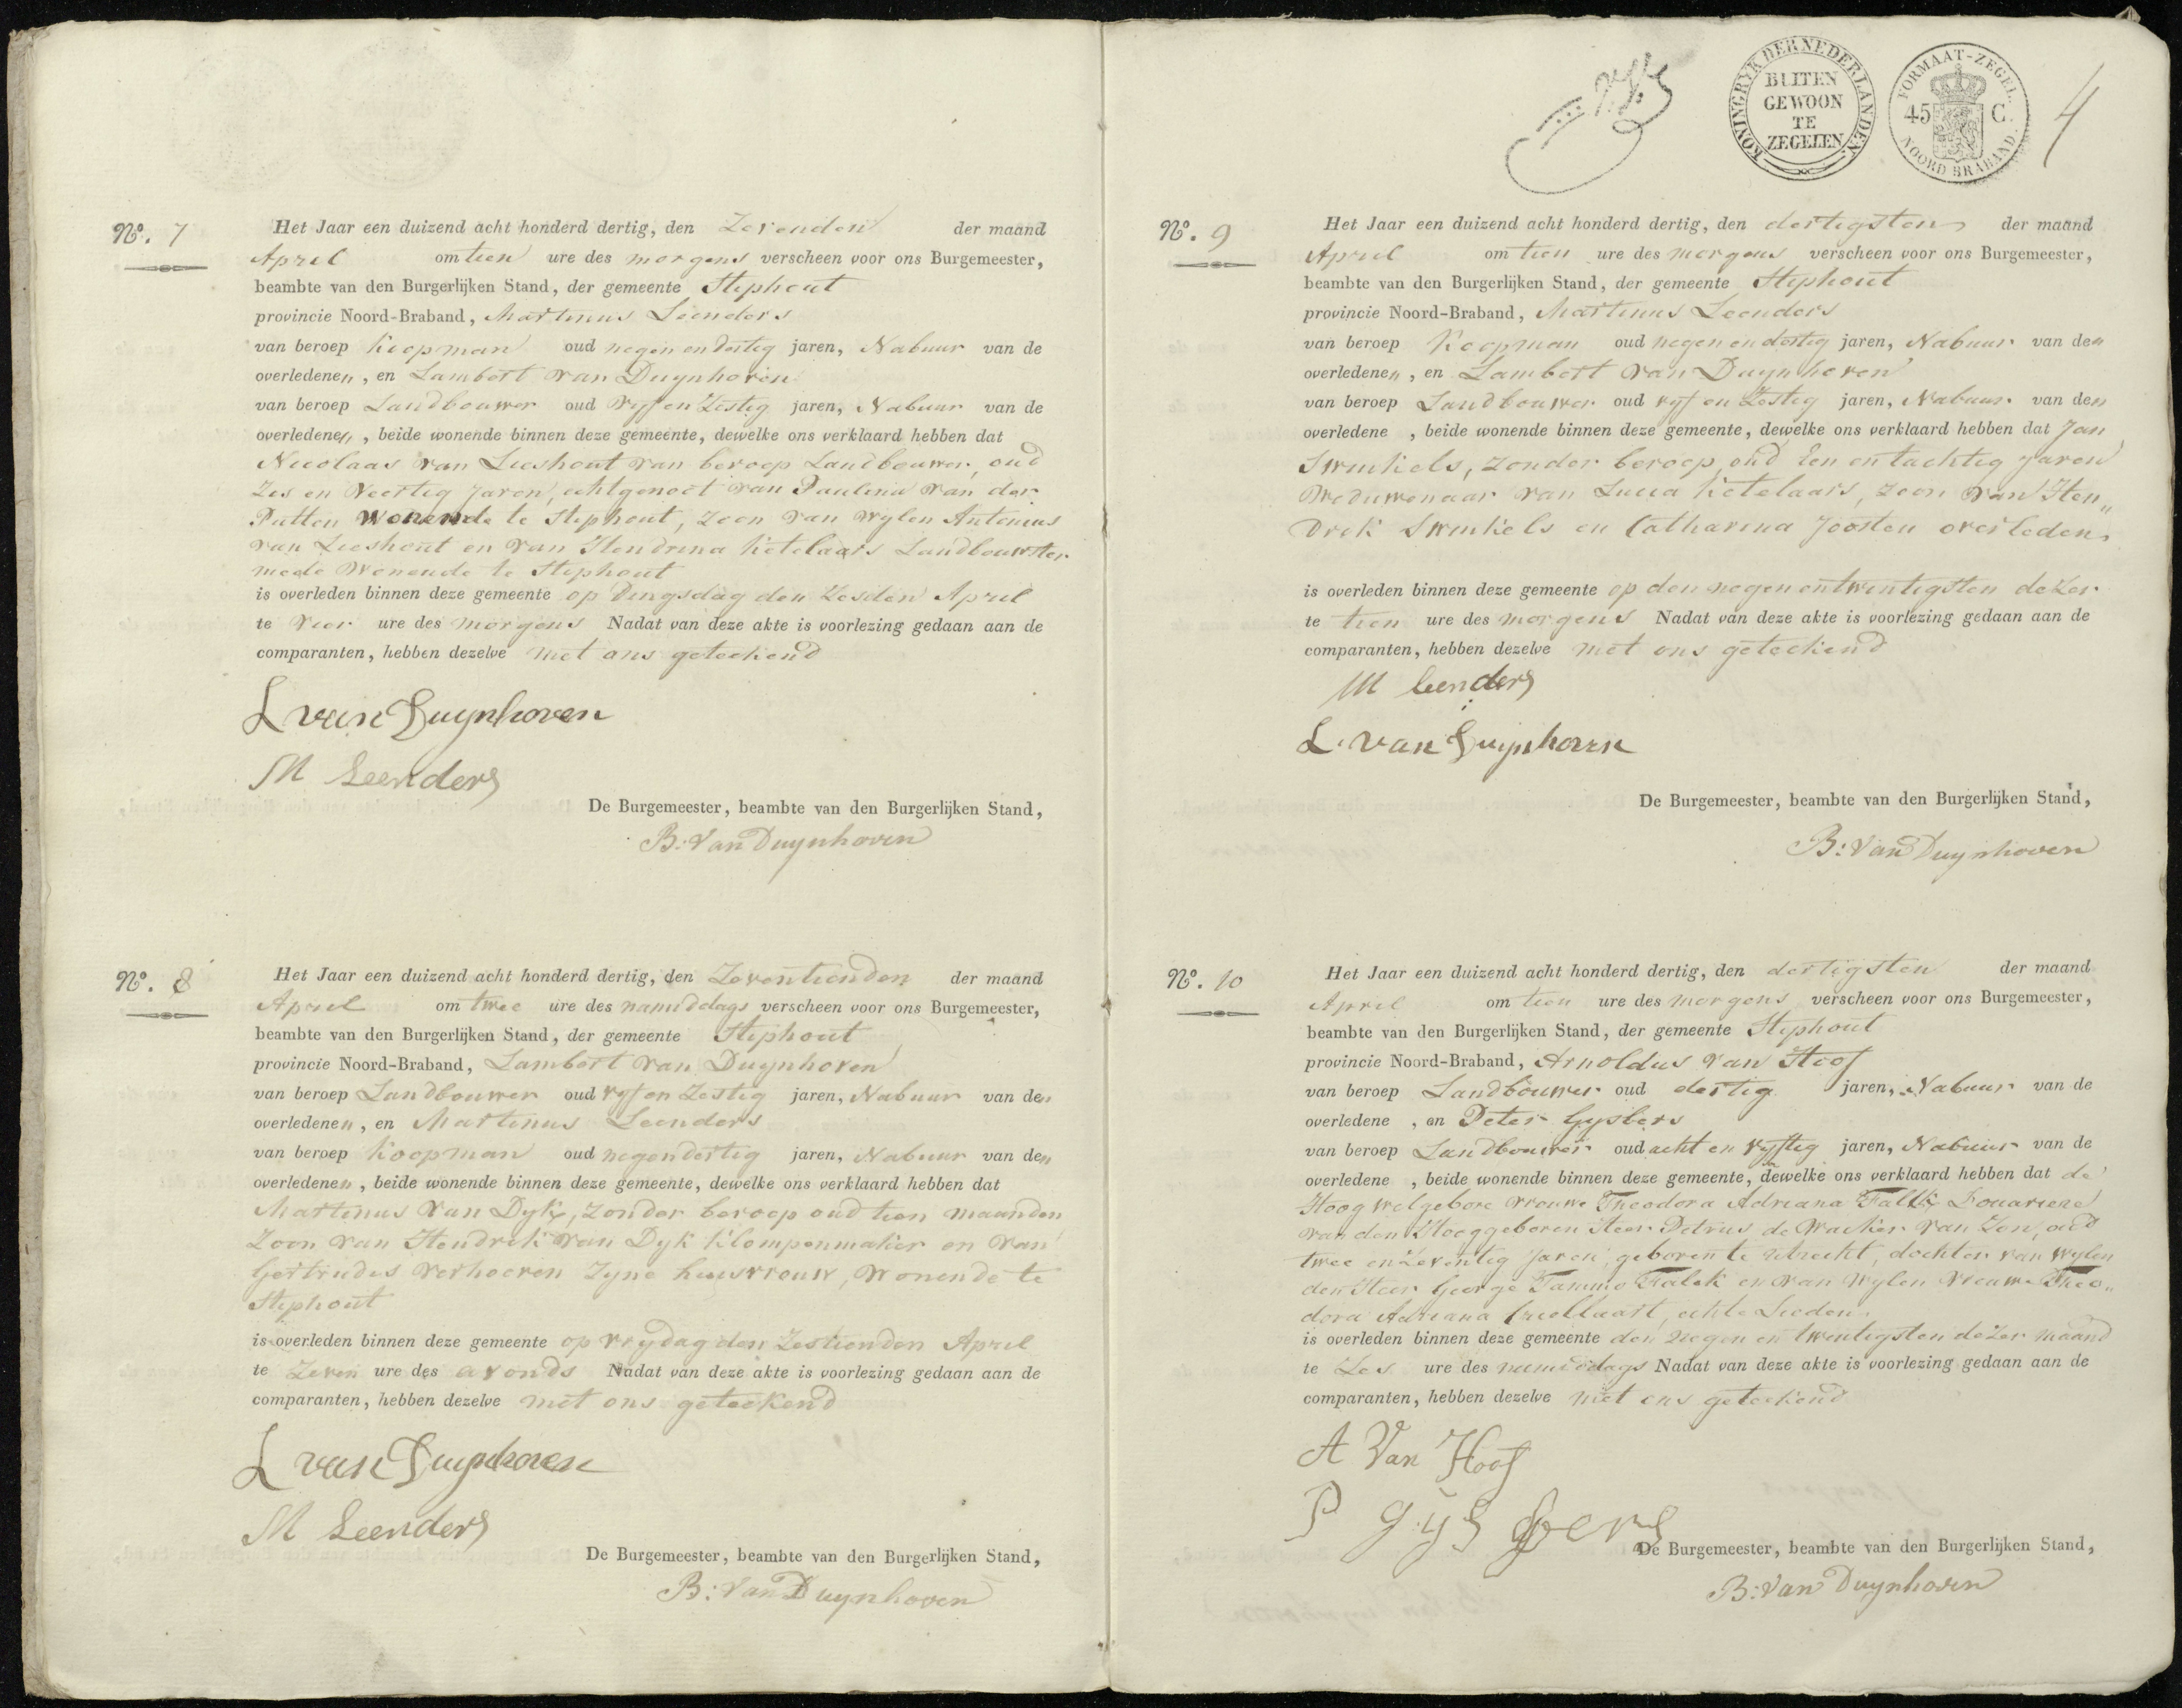 Nº. 7
Het Jaar een duizend acht honderd dertig, den Zevenden der maand
April om tien ure des morgens verscheen voor ons Burgemeester,
beambte van den Burgerlijken Stand, der gemeente Stiphout
provincie Noord-Braband, Martinus Leenders
van beroep Koopman oud negen en dertig jaren, Nabuur van de
overledenen, en Lambert van Duynhoven
van beroep Landbouwer oud vyf en Zestig jaren, Nabuur van de
overledenen, beide wonende binnen deze gemeente, dewelke ons verklaard hebben dat
Nicolaas van Lieshout van beroep Landbouwer, oud
Zes en Veertig Jaren, echtgenoot van Paulina van der
Putten wonende te Stiphout, Zoon van wylen Antonius
van Lieshout en van Hendrina Ketelaars Landbouwster
mede Wonende te Stiphout
is overleden binnen deze gemeente op Dingsdag den Zesden April
te Vier ure des morgens Nadat van deze akte is voorlezing gedaan aan de
comparanten, hebben dezelve met ons geteekend
L van Duynhoven
M Leenders
De Burgemeester, beambte van den Burgerlijken Stand,
B: Van Duynhoven
Nº. 8
Het Jaar een duizend acht honderd dertig, den Zeventienden der maand
April om twee ure des namiddags verscheen voor ons Burgemeester,
beambte van den Burgerlijken Stand, der gemeente Stiphout
provincie Noord-Braband, Lambert van Duynhoven
van beroep Landbouwer oud vyf en Zestig jaren, Nabuur van den
overledenen, en Martinus Leenders
van beroep Koopman oud negendertig jaren, Nabuur van den
overledenen, beide wonende binnen deze gemeente, dewelke ons verklaard hebben dat
Martinus van Dyk, Zonder beroep oud tien maanden
Zoon van Hendrik van Dyk Klompenmaker en van
Gertrudes Verhoeven Zyne huisvrouw, Wonende te
Stiphout
is overleden binnen deze gemeente op vrydag den Zestienden April
te Zeven ure des avonds Nadat van deze akte is voorlezing gedaan aan de
comparanten, hebben dezelve met ons geteekend
L van Duynhoven
M Leenders
De Burgemeester, beambte van den Burgerlijken Stand,
B: Van Duynhoven
KONINGRYK DER NEDERLANDEN.
BUITEN
GEWOON
TE
ZEGELEN
FORMAAT-ZEGEL.
45 C.
NOORD BRABAND.
4
Nº. 9
Het Jaar een duizend acht honderd dertig, den dertigsten der maand
April om tien ure des morgens verscheen voor ons Burgemeester,
beambte van den Burgerlijken Stand, der gemeente Stiphout
provincie Noord-Braband, Martinus Leenders
van beroep Koopman oud negen en dertig jaren, Nabuur van den
overledenen, en Lambert van Duynhoven
van beroep Landbouwer oud vyf en Zestig jaren, Nabuur van den
overledene, beide wonende binnen deze gemeente, dewelke ons verklaard hebben dat Jan
Swinkels, Zonder beroep, oud Een en tachtig Jaren
Weduwenaar van Lucia Ketelaars, Zoon van Hen„
Drik Swinkels en Catharina Joosten overleden
is overleden binnen deze gemeente op den negen entwintigsten dezer
te tien ure des morgens Nadat van deze akte is voorlezing gedaan aan de
comparanten, hebben dezelve met ons geteekend
M leenders
L. van Duijnhoven
De Burgemeester, beambte van den Burgerlijken Stand,
B: Van Duynhoven
Nº. 10
Het Jaar een duizend acht honderd dertig, den dertigsten der maand
April om tien ure des morgens verscheen voor ons Burgemeester,
beambte van den Burgerlijken Stand, der gemeente Stiphout
provincie Noord-Braband, Arnoldus van Hoof
van beroep Landbouwer oud dertig jaren, Nabuur van de
overledene, en Peter Gysbers
van beroep Landbouwer oud acht en vyftig jaren, Nabuur van de
overledene, beide wonende binnen deze gemeente, dewelke ons verklaard hebben dat de
Hoog welgebore vrouwe Theodora Adriana Falck Douariere
van den Hooggeboren Heer Petrus de Wacker van Zon, oud
twee en Zeventig Jaren, geboren te Utrecht, dochter van wylen
den Heer George Tammo Falck en van Wylen Vrouwe Theo„
dora Adriana Craeyvanger, echte Lieden
is overleden binnen deze gemeente den negen en twintigsten dezer maand
te Zes ure des namiddags Nadat van deze akte is voorlezing gedaan aan de
comparanten, hebben dezelve met ons geteekend
A Van Hoof
P gys bers
De Burgemeester, beambte van den Burgerlijken Stand,
B: Van Duynhoven